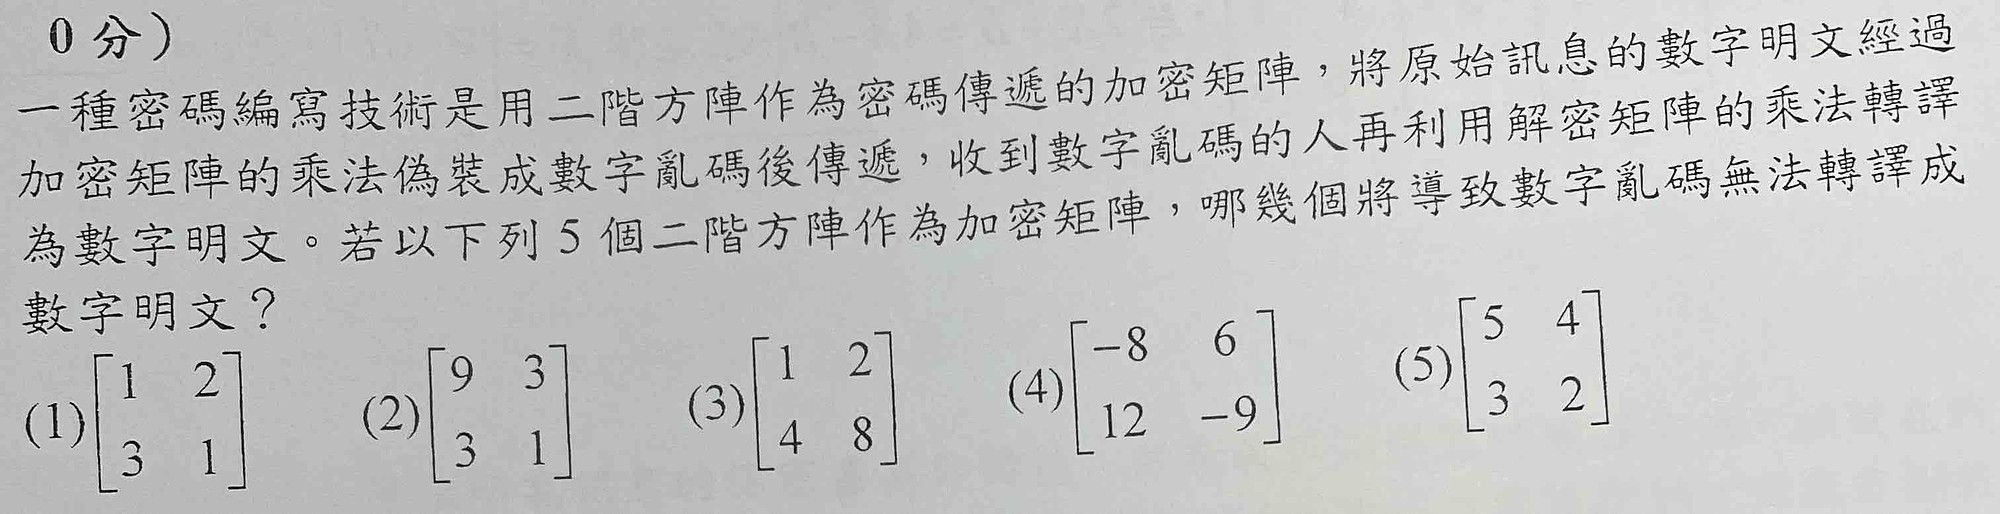 0 分）
一種密碼編寫技術是用二階方陣作為密碼傳遞的加密矩陣，將原始訊息的數字明文經過
加密矩陣的乘法偽裝成數字亂碼後傳遞，收到數字亂碼的人再利用解密矩陣的乘法轉譯
為數字明文。若以下列 5 個二階方陣作為加密矩陣，哪幾個將導致數字亂碼無法轉譯成
數字明文？
(1) [1 2; 3 1] (2) [9 3; 3 1] (3) [1 2; 4 8] (4) [−8 6; 12 −9] (5) [5 4; 3 2]